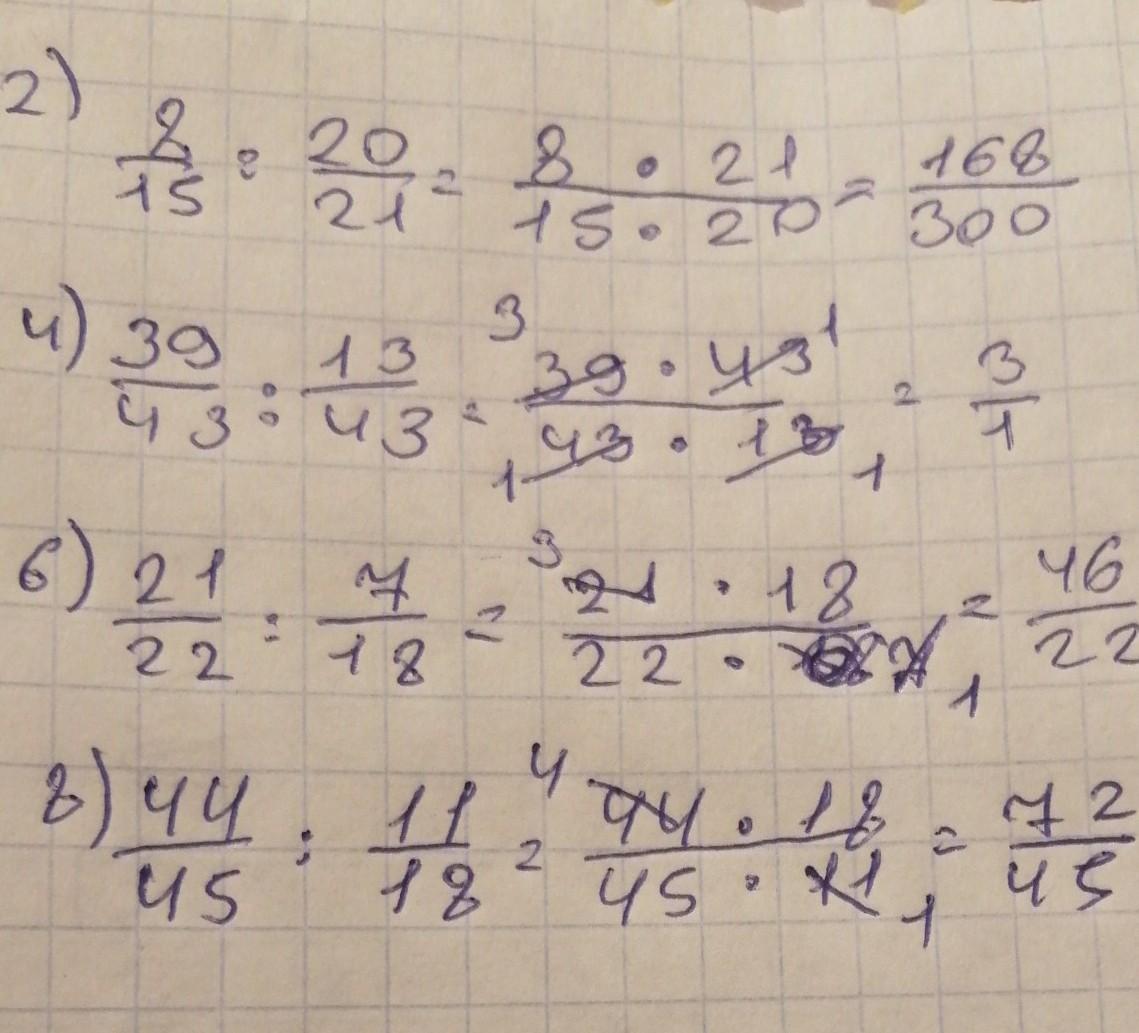 2) 8/15 : 20/21 = 8 · 21 / 15 · 20 = 168/300
4) 39/43 : 13/43 = 3 39 · 43 1 / 1 43 · 13 1 = 3/1
6) 21/22 : 7/18 = 3 21 · 18 / 22 · 7 1 = 46/22
8) 44/45 : 11/18 = 4 44 · 18 / 45 · 11 1 = 72/45